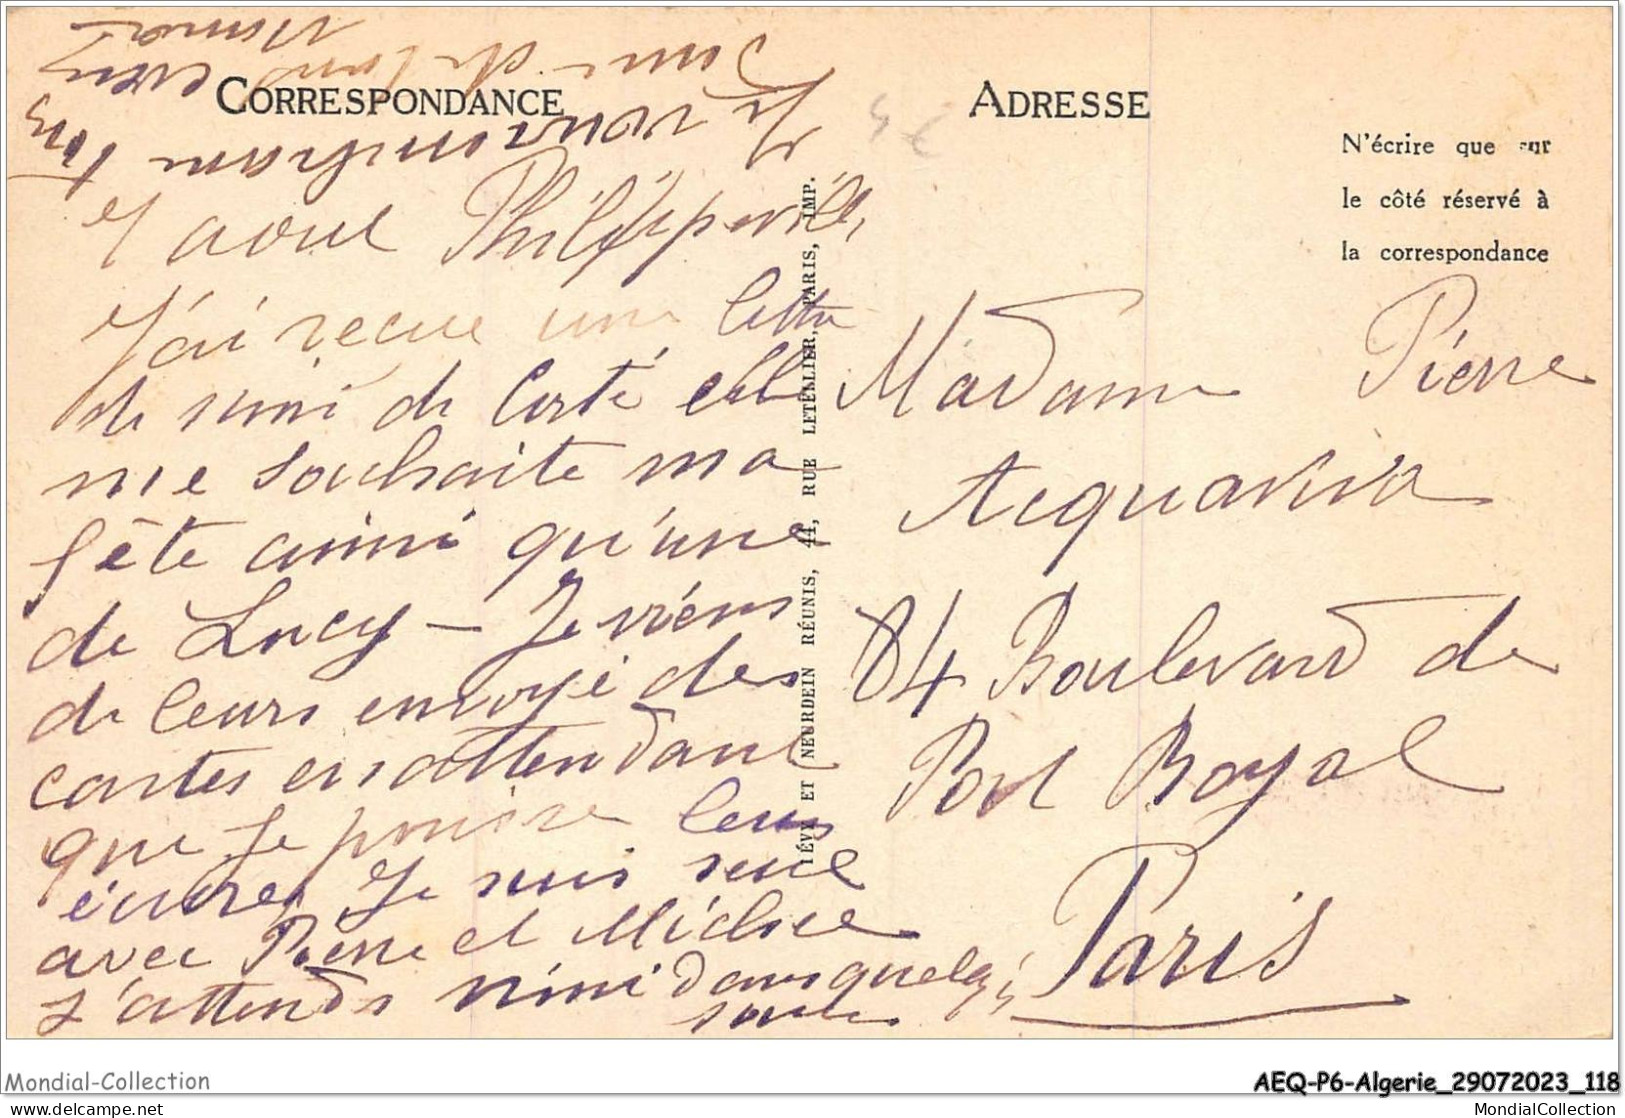 CORRESPONDANCE
Y aout Philippeville,
J'ai recue une lettre
de nini de Corté elle
me souhaite ma
fête ainsi qu'une
de Lucy - Je viens
de leurs envoyé des
cartes en attendant
que je puisse leurs
écrire, Je suis seule
avec Pierre et Michee
J'attends nini dans quelq;
jours
Je vous embrasse Tous
ADRESSE
N'écrire que sur
le côté réservé à
la correspondance
Madame Pierre
Acquaviva
84 Boulevard de
Port Royal
Paris
LÉVY ET NEURDEIN RÉUNIS, 44, RUE LETELLIER, PARIS, IMP.
Mondial-Collection
AEQ-P6-Algerie_29072023_118
mondial-collection.com
MondialCollection